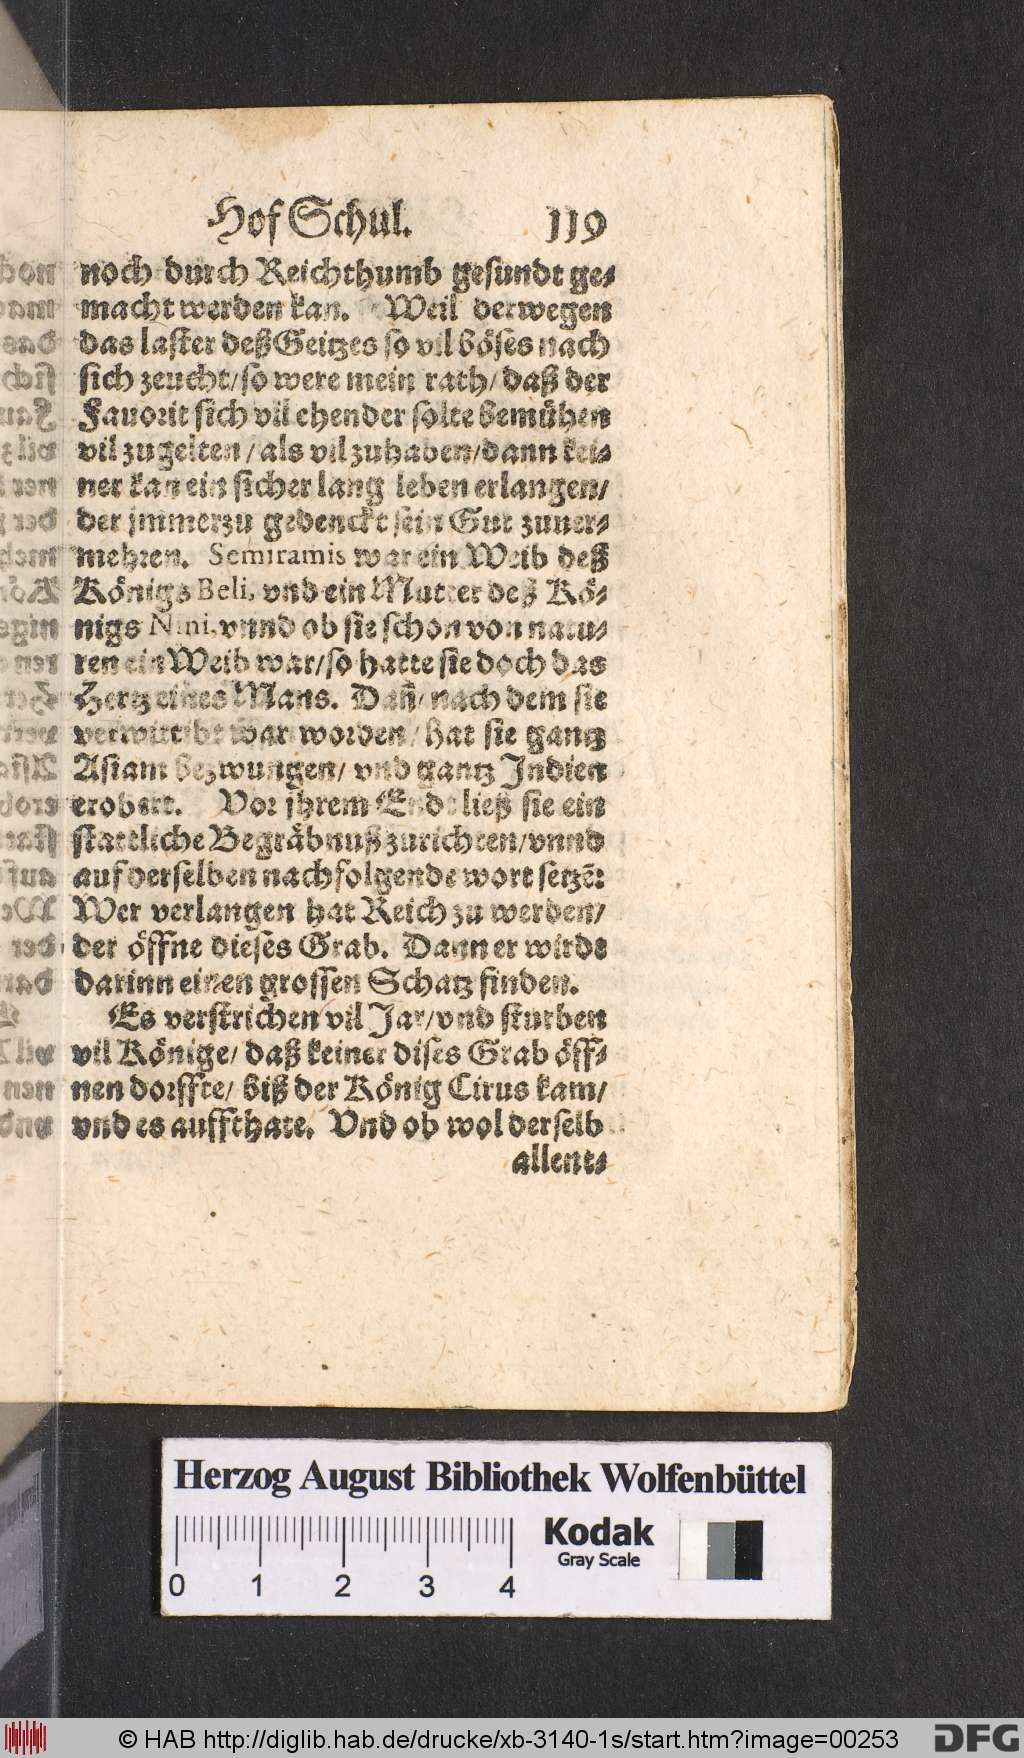 Hof Schul. 119
noch durch Reichthumb gesundt ge-
macht werden kan. Weil derwegen
das laster deß Geitzes so vil böses nach
sich zeucht/ so were mein rath/ daß der
Favorit sich vil ehender solte bemühen
vil zu gelten/ als vil zuhaben/ dann kei-
ner kan ein sicher lang leben erlangen/
der jmmerzu gedenckt sein Gut zuuer-
mehren. Semiramis war ein Weib deß
Königs Beli, vnd ein Mutter deß Kö-
nigs Nini, vnnd ob sie schon von natu-
ren ein Weib war/ so hatte sie doch das
Hertz eines Mans. Dañ/ nach dem sie
verwittibt war worden/ hat sie gantz
Asiam bezwungen/ vnd gantz Indien
erobert. Vor jhrem Ende ließ sie ein
stattliche Begräbnuß zurichten/ vnnd
auf derselben nachfolgende wort setzẽ:
Wer verlangen hat Reich zu werden/
der öffne dieses Grab. Dann er wirdt
darinn einen grossen Schatz finden.
Es verstrichen vil Jar/ vnd sturben
vil Könige/ daß keiner dises Grab öff-
nen dorffte/ biß der König Cirus kam/
vnd es auffthate. Vnd ob wol derselb
allent-
Herzog August Bibliothek Wolfenbüttel
Kodak
Gray Scale
0 1 2 3 4
© HAB http://diglib.hab.de/drucke/xb-3140-1s/start.htm?image=00253
DFG